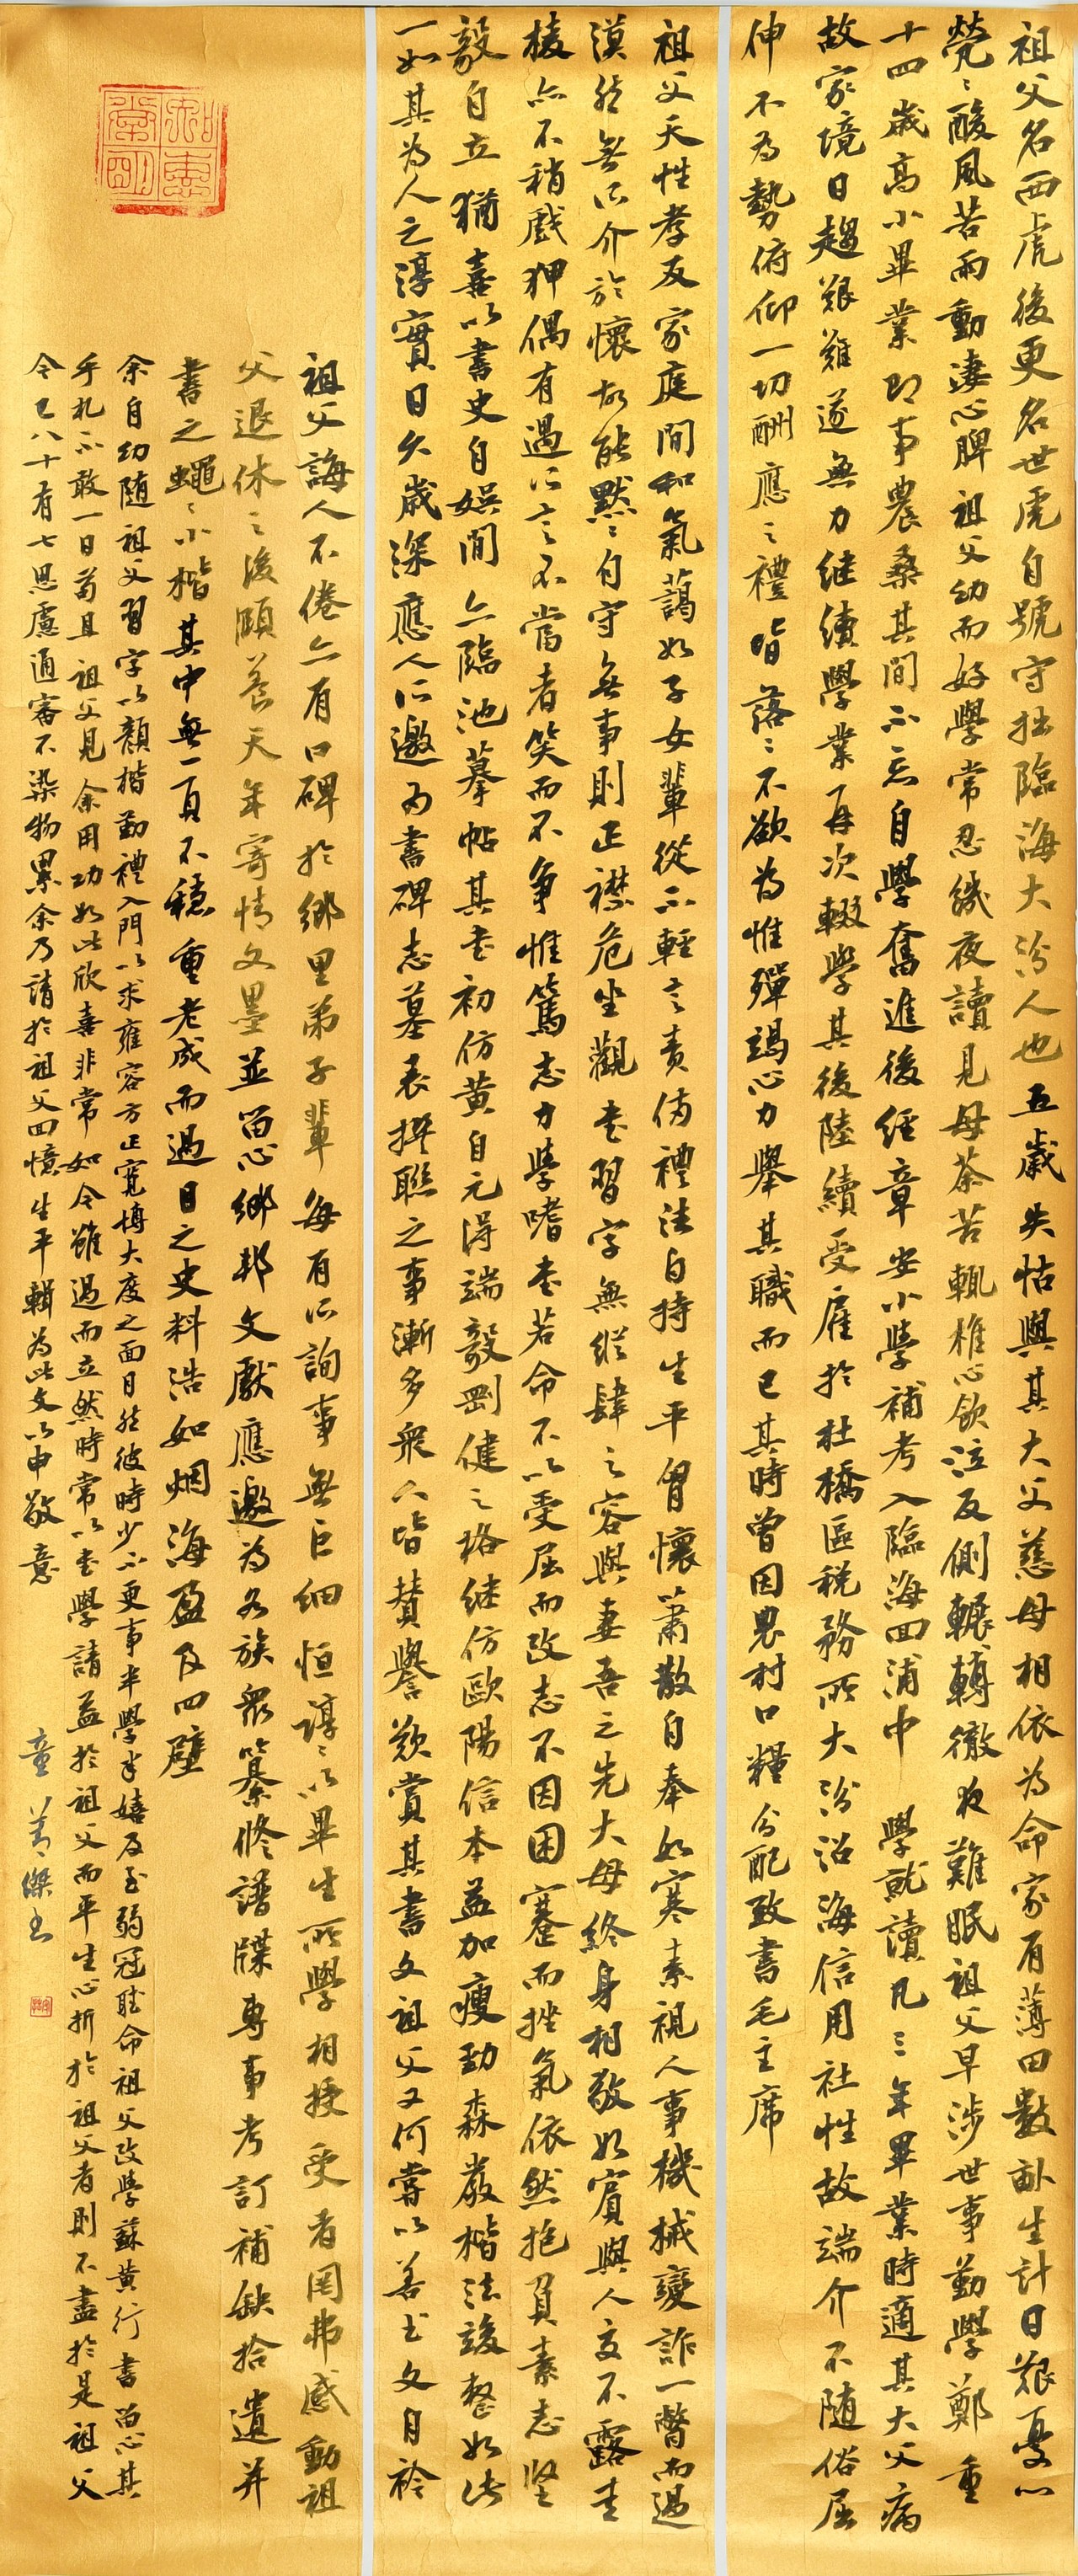 祖父名西虎後更名世虎自號守拙臨海大汾人也五歲失怙與其大父慈母相依為命家有薄田數畝生計日艱憂心
煢〻酸風苦雨動淒心脾祖父幼而好學常忍饑夜讀見母荼苦輒椎心飲泣反側輾轉徹夜難眠祖父早涉世事勤學鄭重
十四歲高小畢業即事農桑其間不忘自學奮進後經章安小學補考入臨海回浦中學就讀凡三年畢業時適其大父病
故家境日趨艱難遂無力继續學業再次輟學其後陸續受雇於杜橋區稅務所大汾沿海信用社性故端介不随俗屈
伸不為勢俯仰一切酬應之禮皆落〻不欲為惟殫竭心力舉其職而已其時曾因農村口糧分配致書毛主席
祖父天性孝友家庭間和氣藹如子女輩從不輕言責備禮法自持生平胷懷蕭散自奉如寒素視人事機械變詐一瞥而過
漠然無所介於懷故能黙〻自守無事則正襟危坐觀書習字無縱肆之容與妻吾之先大母終身相敬如賓與人交不露圭
棱亦不稍戲狎偶有過所言不當者笑而不爭惟篤志力學嗜書若命不以受屈而改志不因困蹇而挫氣依然抱負素志堅
毅自立猶喜以書史自娛閒亦臨池摹帖其書初仿黄自元得端毅剛健之格继仿歐陽信本益加瘦勁森嚴楷法謹整如此
一如其為人之淳實日久歲深應人所邀为書碑志墓表撰聯之事漸多衆人皆贊譽歎賞其書文祖父又何嘗以善书文自矜
祖父誨人不倦亦有口碑於鄉里弟子輩每有所詢事無巨細恒諄〻以畢生所學相授受者罔弗感動祖
父退休之後頤養天年寄情文墨並留心鄉邦文獻應邀為各族衆纂修譜牒專事考訂補缺拾遺并
書之蠅〻小楷其中無一頁不穩重老成而過目之史料浩如烟海盈及四壁
余自幼随祖父習字以顏楷勤禮入門以求雍容方正寬博大度之面目然彼時少不更事半學半嬉及至弱冠聴命祖父改學蘇黄行書留心其
手札不敢一日苟且祖父見余用功如此欣喜非常如今雖過而立然時常以書學請益於祖父而平生心折於祖父者則不盡於是祖父
今已八十有七思慮通審不染物累余乃請於祖父回憶生平輯為此文以申敬意
童善傑书